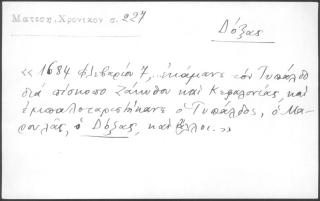 Ματσση, Χρονικον σ. 227
Δόξας
«1684 Φλεβαρίου 7, .. ἐκάμανε τὸν Τυπάλδο
διά πίσκοπο Ζάκυνθου καί Κεφαλονίας, καί
ἐμπαλοταριστήκανε ὁ Τυπάλδος, ὁ Μα-
ρουλᾶς, ὁ Δόξας, καί ἄλλοι.»